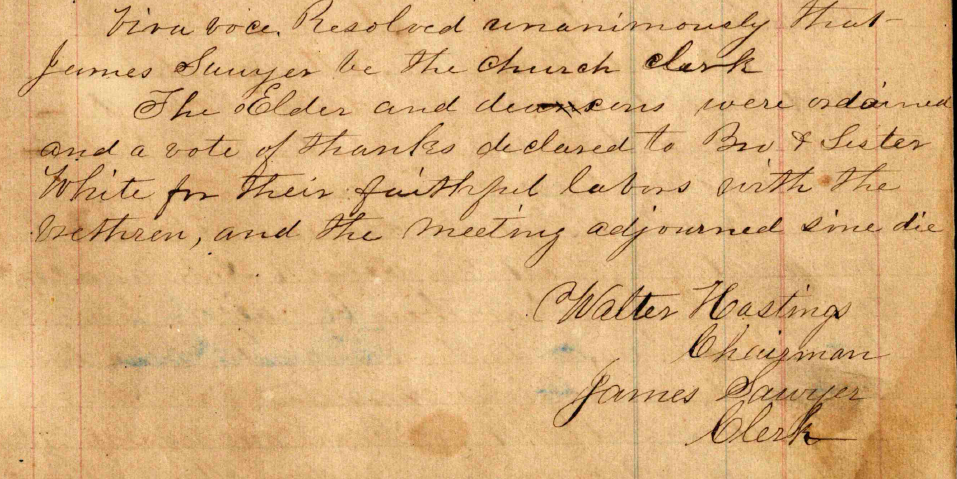 viva voce. Resolved unanimously that
James Sawyer be the church clerk
The Elder and deacons were ordained
and a vote of thanks declared to Bro & Sister
White for their faithful labors with the
brethren, and the meeting adjourned sine die
Walter Hastings
Chairman
James Sawyer
Clerk